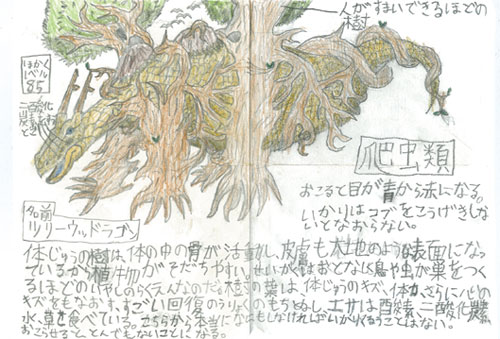 人がすいできるほどの
樹
ほかく
レベル
85
二酸化
炭素
爬虫類
おこると目が青から赤になる。
いかりはコブをこうげきしな
いとなおらない。
名前
ツリーウッドドラゴン
体じゅうの樹は、体の中の骨が活動し、皮膚も木地のような表面になっ
ているから植物がそだちやすい。せいかくはおとなしく鳥や虫が巣をつく
るほどのいやしのらくえんなのだ。樹の葉は、体じゅうのキズ、体力、さらに心の
キズをもなおす、すごい回復のうりょくのもちぬし。エサは酸素、二酸化炭素、
水、草を食べている。こちらから本当になにもしなければいかりくるうことはない。
おこらせると、とんでもないことになる。